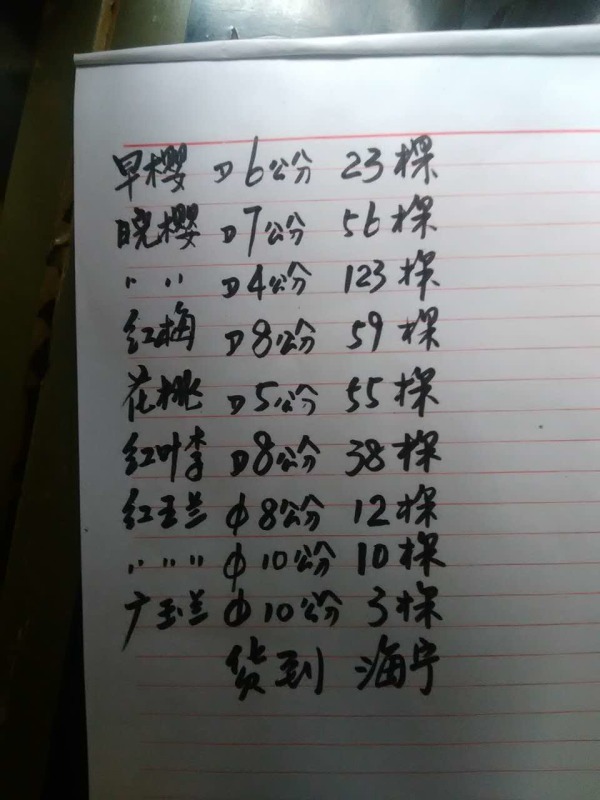 早樱 D6公分 23棵
晓樱 D7公分 56棵
〃 〃 D4公分 123棵
红梅 D8公分 59棵
花桃 D5公分 55棵
红叶李 D8公分 38棵
红玉兰 φ8公分 12棵
〃 〃 〃 φ10公分 10棵
广玉兰 φ10公分 3棵
货到 海宁